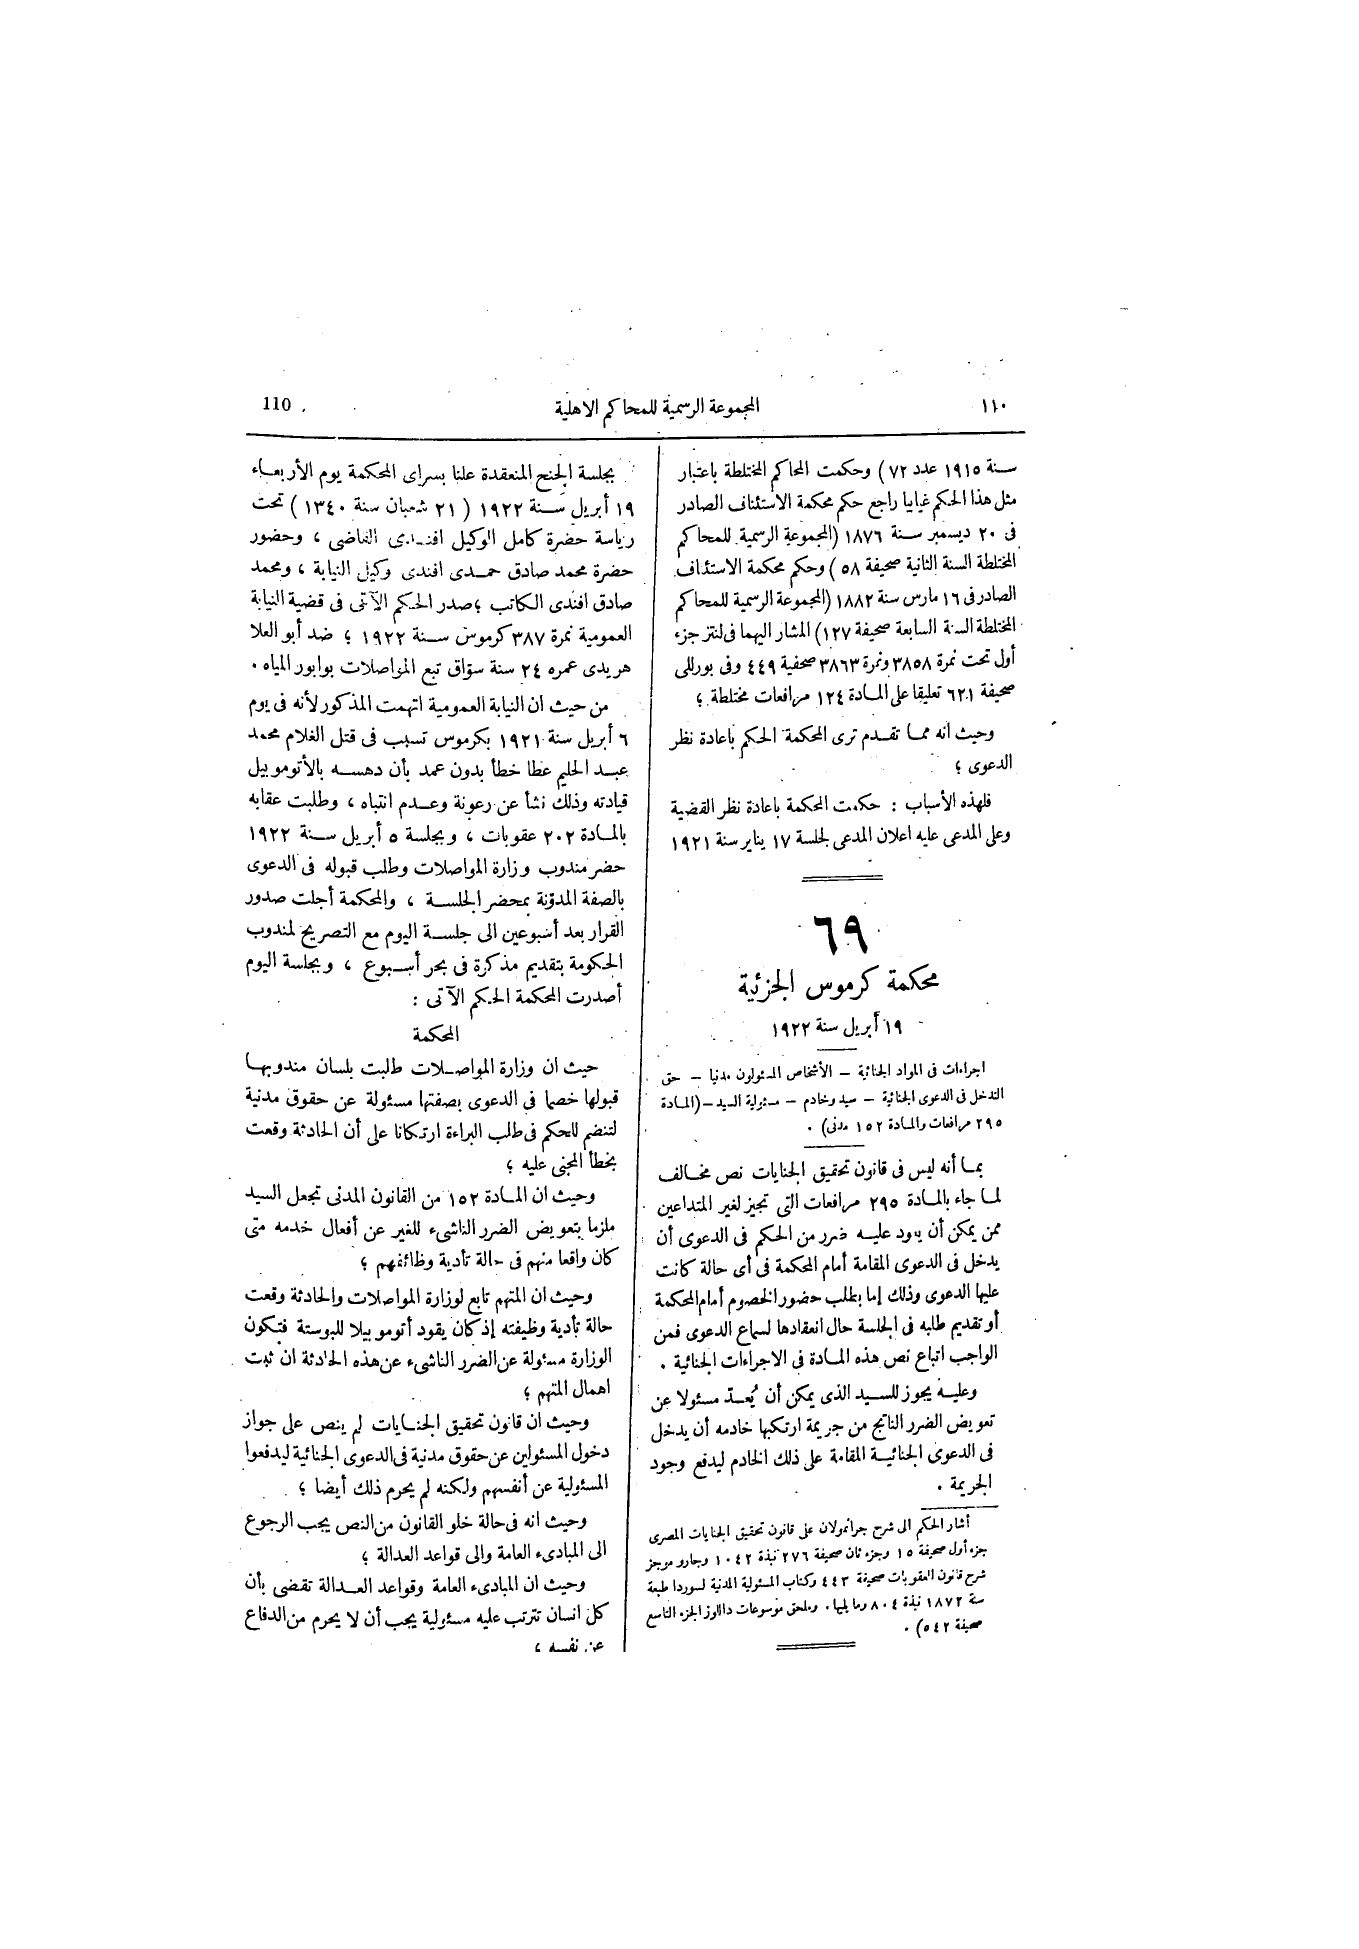 ١١٠
المجموعة الرسمية للمحاكم الاهلية
110
سنة ١٩١٥ عدد ٧٢) وحكمت المحاكم المختلطة باعتبار
مثل هذا الحكم غيابيا راجع حكم محكمة الاستئناف الصادر
فى ٢٠ ديسمبر سنة ١٨٧٦ (المجموعة الرسمية للمحاكم
المختلطة السنة الثانية صحيفة ٥٨) وحكم محكمة الاستئناف
الصادر فى ١٦ مارس سنة ١٨٨٢ (المجموعة الرسمية للمحاكم
المختلطة السنة السابعة صحيفة ١٢٧) المشار اليهما فى لنتز جزء
أول تحت نمرة ٣٨٥٨ ونمرة ٣٨٦٣ صحفية ٤٤٩ وفى بورللى
صحيفة ٦٢١ تعليقا على المادة ١٢٤ مرافعات مختلطة ؛
وحيث انه مما تقدم ترى المحكمة الحكم باعادة نظر
الدعوى ؛
فلهذه الأسباب : حكمت المحكمة باعادة نظر القضية
وعلى المدعى عليه اعلان المدعى لجلسة ١٧ يناير سنة ١٩٢١
٦٩
محكمة كرموس الجزئية
١٩ أبريل سنة ١٩٢٢
اجراءات فى المواد الجنائية – الأشخاص المسئولون مدنيا – حق
التدخل فى الدعوى الجنائية – سيد وخادم – مسئولية السيد – (المادة
٢٩٥ مرافعات والمادة ١٥٢ مدنى) .
بما أنه ليس فى قانون تحقيق الجنايات نص مخالف
لما جاء بالمادة ٢٩٥ مرافعات التى تجيز لغير المتداعين
ممن يمكن أن يعود عليه ضرر من الحكم فى الدعوى أن
يدخل فى الدعوى المقامة أمام المحكمة فى أى حالة كانت
عليها الدعوى وذلك إما بطلب حضور الخصوم أمام المحكمة
أو تقديم طلبه فى الجلسة حال انعقادها لسماع الدعوى فمن
الواجب اتباع نص هذه المادة فى الاجراءات الجنائية .
وعليه يجوز للسيد الذى يمكن أن يُعدّ مسئولا عن
تعويض الضرر الناتج من جريمة ارتكبها خادمه أن يدخل
فى الدعوى الجنائية المقامة على ذلك الخادم ليدفع وجود
الجريمة .
أشار الحكم الى شرح جرانمولان على قانون تحقيق الجنايات المصرى
جزء أول صحيفة ١٥ وجزء ثان صحيفة ٢٧٦ نبذة ١٠٤٢ وجارو موجز
شرح قانون العقوبات صحيفة ٤٤٣ وكتاب المسئولية المدنية لسوردا طبعة
سنة ١٨٧٢ نبذة ٨٠٤ وما يليها . وملحق موسوعات داللوز الجزء التاسع
صحيفة ٥٤٢) .
بجلسة الجنح المنعقدة علنا بسراى المحكمة يوم الأربعاء
١٩ أبريل سنة ١٩٢٢ (٢١ شعبان سنة ١٣٤٠) تحت
رياسة حضرة كامل الوكيل افندى القاضى ، وحضور
حضرة محمد صادق حمدى افندى وكيل النيابة ، ومحمد
صادق افندى الكاتب ؛ صدر الحكم الآتى فى قضية النيابة
العمومية نمرة ٣٨٧ كرموس سنة ١٩٢٢ ؛ ضد أبو العلا
هريدى عمره ٢٤ سنة سوّاق تبع المواصلات بوابور المياه .
من حيث ان النيابة العمومية اتهمت المذكور لأنه فى يوم
٦ أبريل سنة ١٩٢١ بكرموس تسبب فى قتل الغلام محمد
عبد الحليم عطا خطأ بدون عمد بأن دهسه بالأتوموبيل
قيادته وذلك نشأ عن رعونة وعدم انتباه ، وطلبت عقابه
بالمادة ٢٠٢ عقوبات ، وبجلسة ٥ أبريل سنة ١٩٢٢
حضر مندوب وزارة المواصلات وطلب قبوله فى الدعوى
بالصفة المدوّنة بمحضر الجلسة ، والمحكمة أجلت صدور
القرار بعد أسبوعين الى جلسة اليوم مع التصريح لمندوب
الحكومة بتقديم مذكرة فى بحر أسبوع ، وبجلسة اليوم
أصدرت المحكمة الحكم الآتى :
المحكمة
حيث ان وزارة المواصلات طلبت بلسان مندوبها
قبولها خصما فى الدعوى بصفتها مسئولة عن حقوق مدنية
لتنضم للحكم فى طلب البراءة ارتكانا على أن الحادثة وقعت
بخطأ المجنى عليه ؛
وحيث ان المادة ١٥٢ من القانون المدنى تجعل السيد
ملزما بتعويض الضرر الناشىء للغير عن أفعال خدمه متى
كان واقعا منهم فى حالة تأدية وظائفهم ؛
وحيث ان المتهم تابع لوزارة المواصلات والحادثة وقعت
حالة تأدية وظيفته إذ كان يقود أتوموبيلا للبوستة فتكون
الوزارة مسئولة عن الضرر الناشىء عن هذه الحادثة ان ثبت
اهمال المتهم ؛
وحيث ان قانون تحقيق الجنايات لم ينص على جواز
دخول المسئولين عن حقوق مدنية فى الدعوى الجنائية ليدفعوا
المسئولية عن أنفسهم ولكنه لم يحرم ذلك أيضا ؛
وحيث انه فى حالة خلو القانون من النص يجب الرجوع
الى المبادىء العامة والى قواعد العدالة ؛
وحيث ان المبادىء العامة وقواعد العدالة تقضى بأن
كل انسان تترتب عليه مسئولية يجب أن لا يحرم من الدفاع
عن نفسه ؛